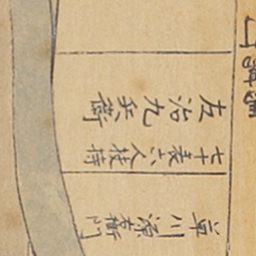 左治九兵衛
七十表六人扶持
草川源右衛門